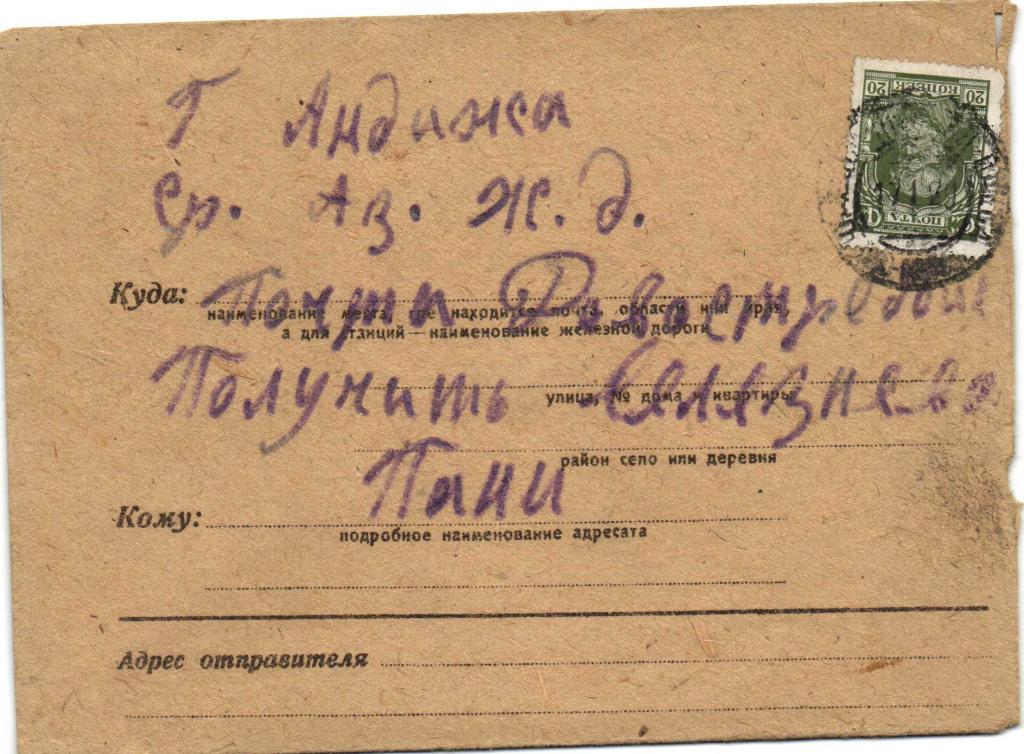 Г Андижа
Ср. Аз. Ж. д.
20 КОПЕЕК 20
ПОЧТА
Куда: Почта
наименование места, где находится почта, области или края,
а для танций — наименование железной дороги
Получить
улица, № дома и квартиры
район село или деревня
Пани
Кому:
подробное наименование адресата
Адрес отправителя